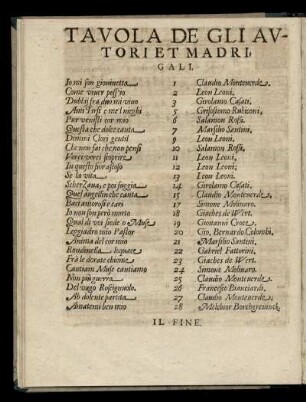 TAVOLA DE GLI AV-
TORI ET MADRI,
GALI.
Io mi son giovinetta 1 Claudio Monteverde.
Come viver poss'io 2 Leon Leoni.
3 Girolamo Casati.
Ami Tirsi e me l nieghi 5 Grisostimo Rubiconi,
Pur venisti cor mio 6 Salamon Rossi.
Questa che dolce canta 7 Marsilio Santini,
Dimmi Clori gentil 9 Leon Leoni.
Che non fai che non pensi 10 Salamon Rossi.
Vorrei scoprire 11 Leon Leoni;
Tu questo sior 12 Leon Leoni;
Se la vita 13 Leon Leoni.
Scherzava, e poi fuggia 14 Girolamo Casati.
Quell'augellin che canta 15 Claudio Monteverde.
Baci amorosi e cari 17 Simone Molinaro.
Io non son però morto 18 Giaches de Wert.
Qual di voi 19 Giovanni Croce.
Leggiadro mio Pastor 20 Gio. Bernardo Colombi,
Anima del cor mio 21 Marsilio Santini,
Rondinella loquace 22 Gabriel Fattorini,
Frà le dorate chiome 23 Giaches de Wert.
Cantiam Muse cantiamo 24 Simone Molinaro.
Non più guerra 25 Claudio Monteverde.
Del vago Rosignuolo. 26 Francesco Bianciardi.
Ah dolente partita. 27 Claudio Monteverde.
Amatemi ben mio 28 Melchior Borchgrevinck
IL FINE.